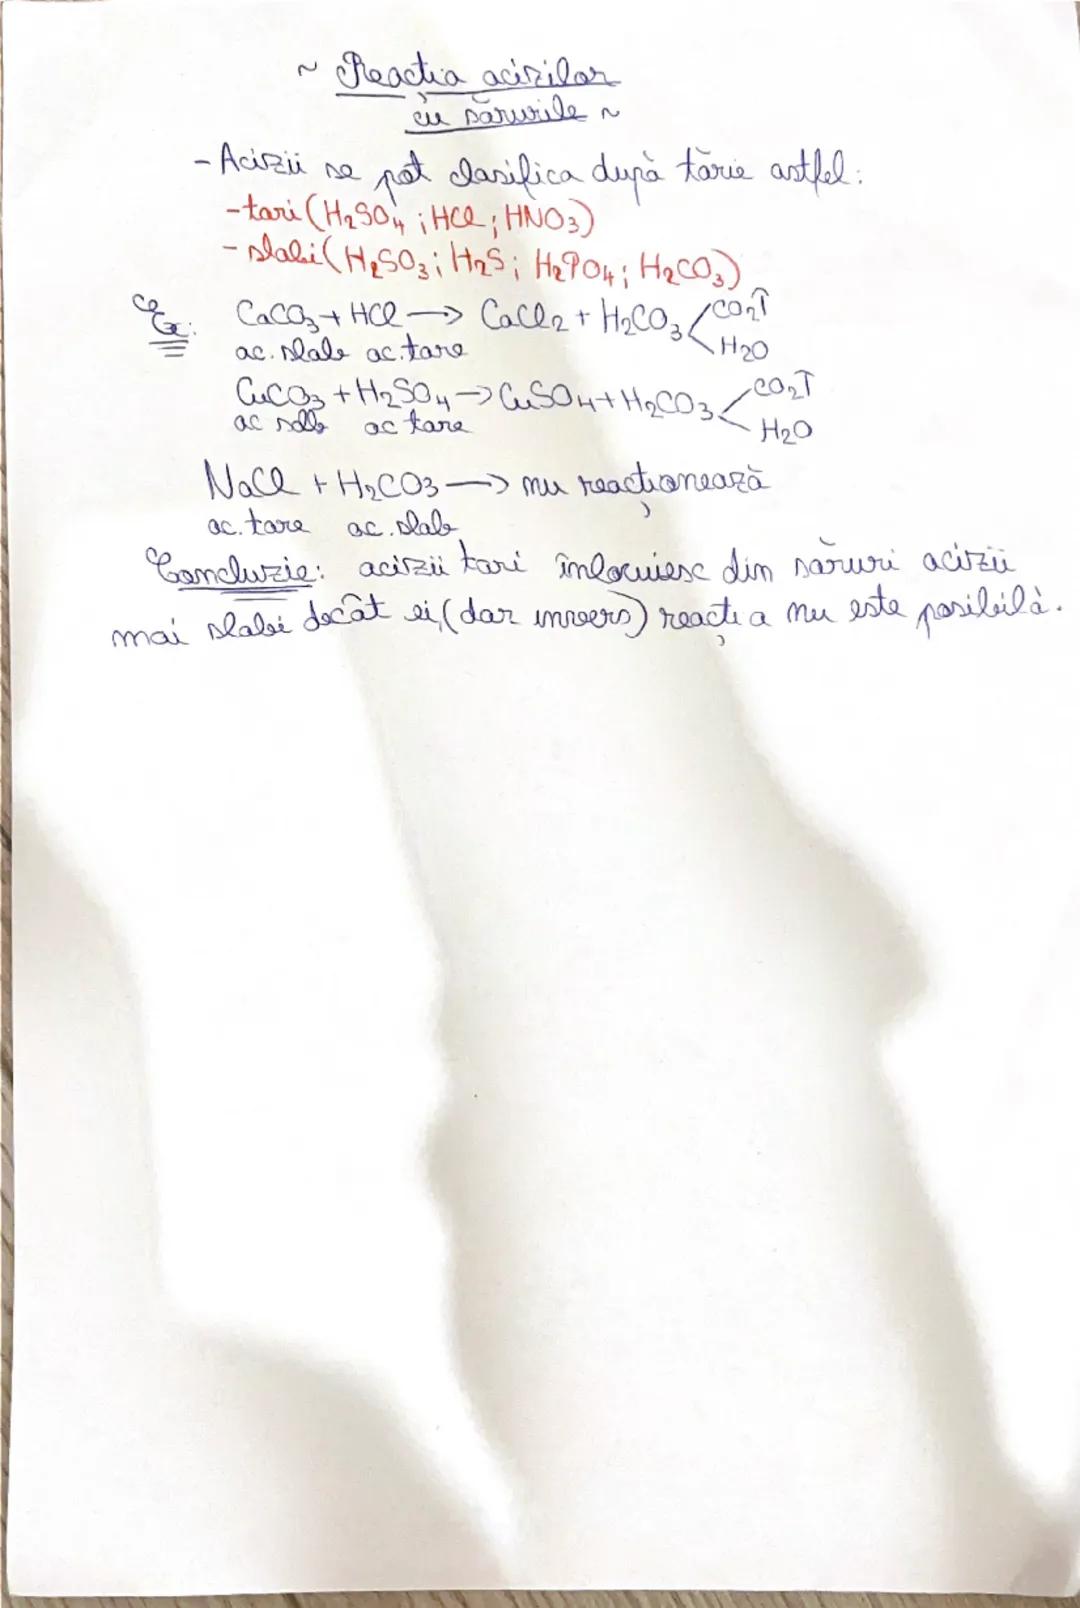 ~ Reactia acizilor
cu sărurile ~
- Acizii se pot clasifica după tărie astfel:
- tari (H₂SO₄ ; HCl ; HNO₃)
- slabi (H₂SO₃ ; H₂S ; H₂PO₄ ; H₂CO₃)
Ex: CaCO₃ + HCl → CaCl₂ + H₂CO₃ < CO₂↑
H₂O
ac. slab ac. tare
CuCO₃ + H₂SO₄ → CuSO₄ + H₂CO₃ < CO₂↑
H₂O
ac slab ac tare
NaCl + H₂CO₃ → nu reacționează
ac. tare ac. slab
Concluzie: acizii tari înlocuiesc din săruri acizii
mai slabi decât ei, (dar invers) reacția nu este posibilă.